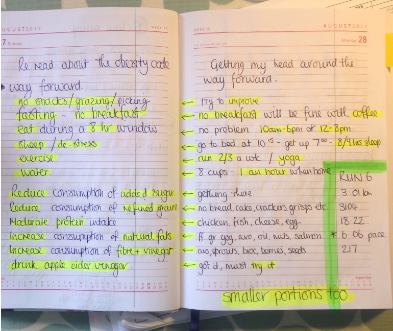 AUGUST 2017
7
Re read about the obesity code
way forward.
no snacks/grazing/picking
fasting - no breakfast
eat during a 8 hr window
sleep / de-stress
exercise
water
Reduce consumption of added sugar
Reduce consumption of refined grains
Moderate protein intake
Increase consumption of natural fats
Increase consumption of fibre + vinegar
drink apple cider vinegar
AUGUST 2017
28
Getting my head around the
way forward.
← try to improve
← no breakfast will be fine with coffee
← no problem 10am-6pm or 12-8pm
← go to bed at 10 - get up 7 - 8/9 hrs sleep
← run 2/3 a wk / yoga
← 8 cups - 1 an hour when home
← getting there
← no bread, cake, crackers, crisps etc.
← chicken, fish, cheese, egg
← yog, avo, oil, nuts, salmon
← avo, sprouts, broc, berries, seeds
← got it, must try it
RUN 6
3.01
3104
18 22
* 6.06 pace
217
smaller portions too